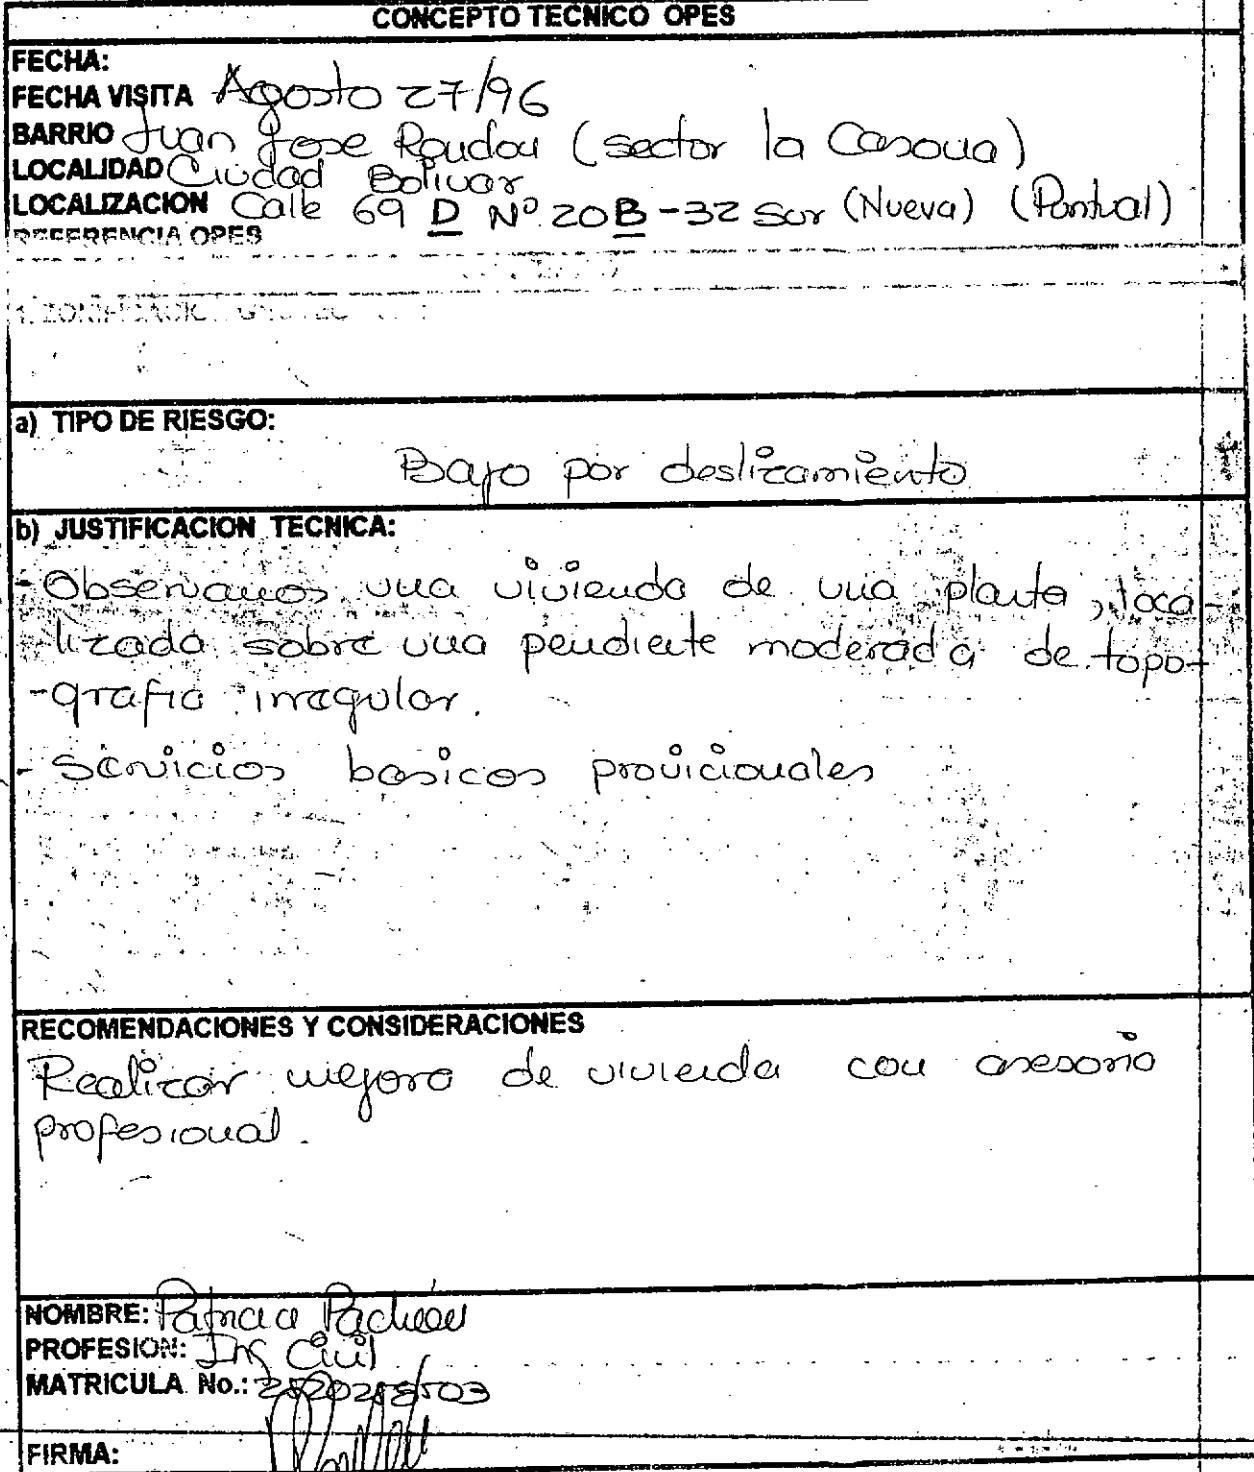 CONCEPTO TECNICO OPES
FECHA:
FECHA VISITA Agosto 27/96
BARRIO Juan Jose Rondon (sector la Casona)
LOCALIDAD Ciudad Bolivar
LOCALIZACION Calle 69 D Nº 20B-32 Sur (Nueva) (Puntual)
REFERENCIA OPES
a) TIPO DE RIESGO:
Bajo por deslizamiento
b) JUSTIFICACION TECNICA:
- Observamos una vivienda de una planta, loca-
lizada sobre una pendiente moderada de topo-
-grafia irregular.
- Servicios basicos provicionales
RECOMENDACIONES Y CONSIDERACIONES
Realizar mejora de vivienda con asesoria
profesional.
NOMBRE: Patricia Pachón
PROFESION: Ing Civil
MATRICULA No.:
FIRMA: